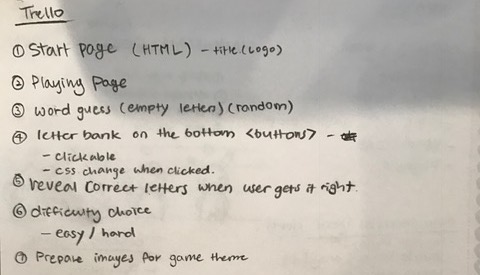 Trello
① Start page (HTML) - title (Logo)
② Playing Page
③ word guess (empty letters) (random)
④ letter bank on the bottom <buttons> -
- clickable
- css change when clicked.
⑤ reveal correct letters when user gets it right.
⑥ difficulty choice
- easy / hard
⑦ Prepare images for game theme